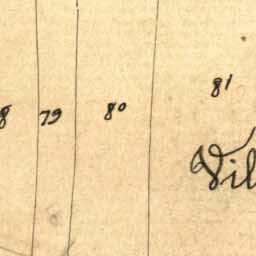 79
80
81
Vil